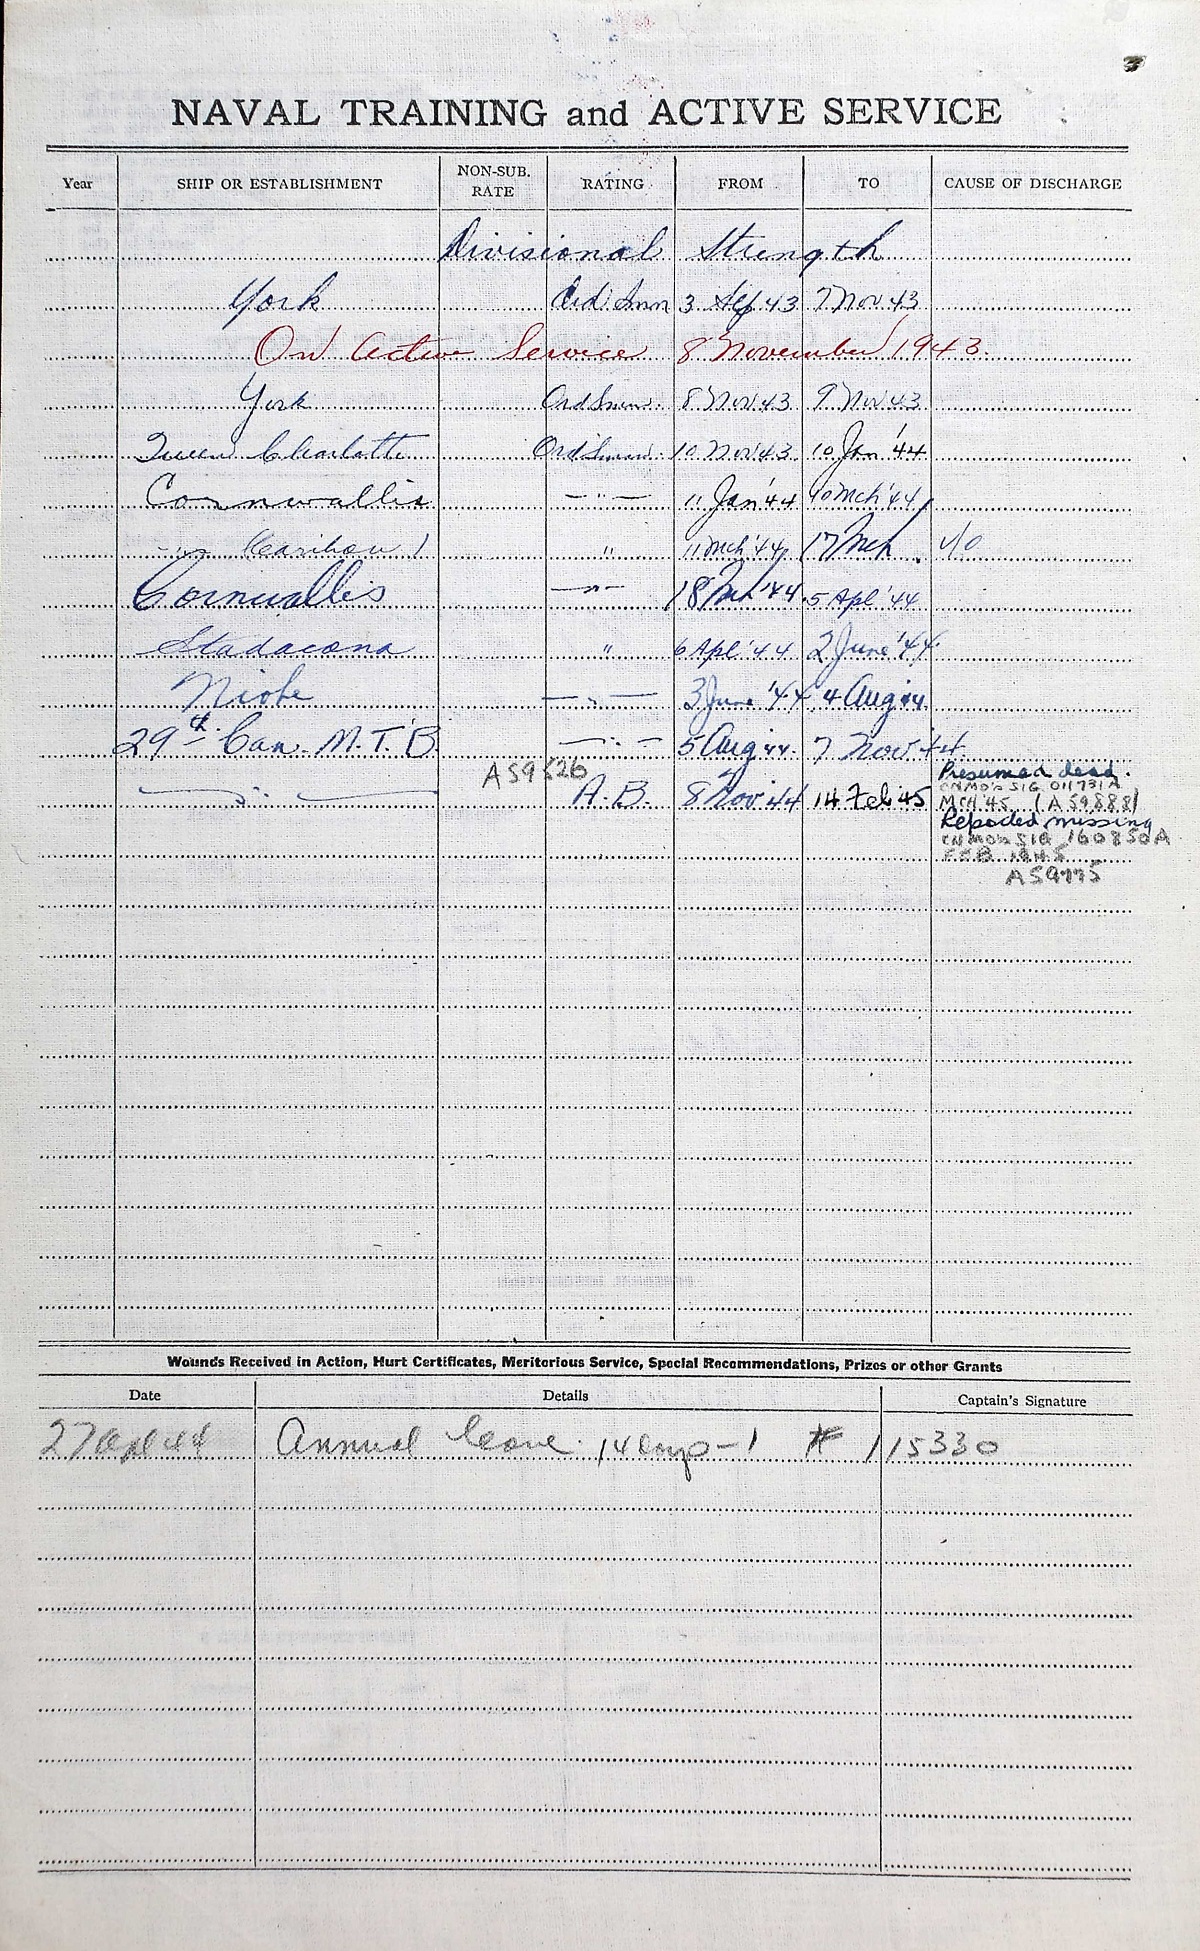 NAVAL TRAINING and ACTIVE SERVICE
Year SHIP OR ESTABLISHMENT NON-SUB. RATE RATING FROM TO CAUSE OF DISCHARGE
Divisional Strength
York Ord Smn 3 Sep 43 7 Nov 43
On Active Service 8 November 1943.
York Ord Smn. 8 Nov 43 9 Nov 43
Queen Charlotte Ord Smn. 10 Nov 43 10 Jan '44
Cornwallis — " — 11 Jan '44 10 Mch '44
" Caribou 1 " 11 Mch '44 17 Mch
Cornwallis — " — 18 Mch '44 5 Apl '44
Stadacona " 6 Apl '44 2 June '44
Niobe — " — 3 June '44 4 Aug 44.
29th Can. M.T.B. — " — 5 Aug 44. 7 Nov 44.
A59526
— " — A.B. 8 Nov 44 14 Feb 45 Presumed dead.
CNMO's SIG 011731A
MCH '45 (A59888)
Reported missing
CNMO's SIG 160850A
FEB 1945
A59775
Wounds Received in Action, Hurt Certificates, Meritorious Service, Special Recommendations, Prizes or other Grants
Date Details Captain's Signature
27 Apl 44 Annual leave 14 days - 1 # 115330